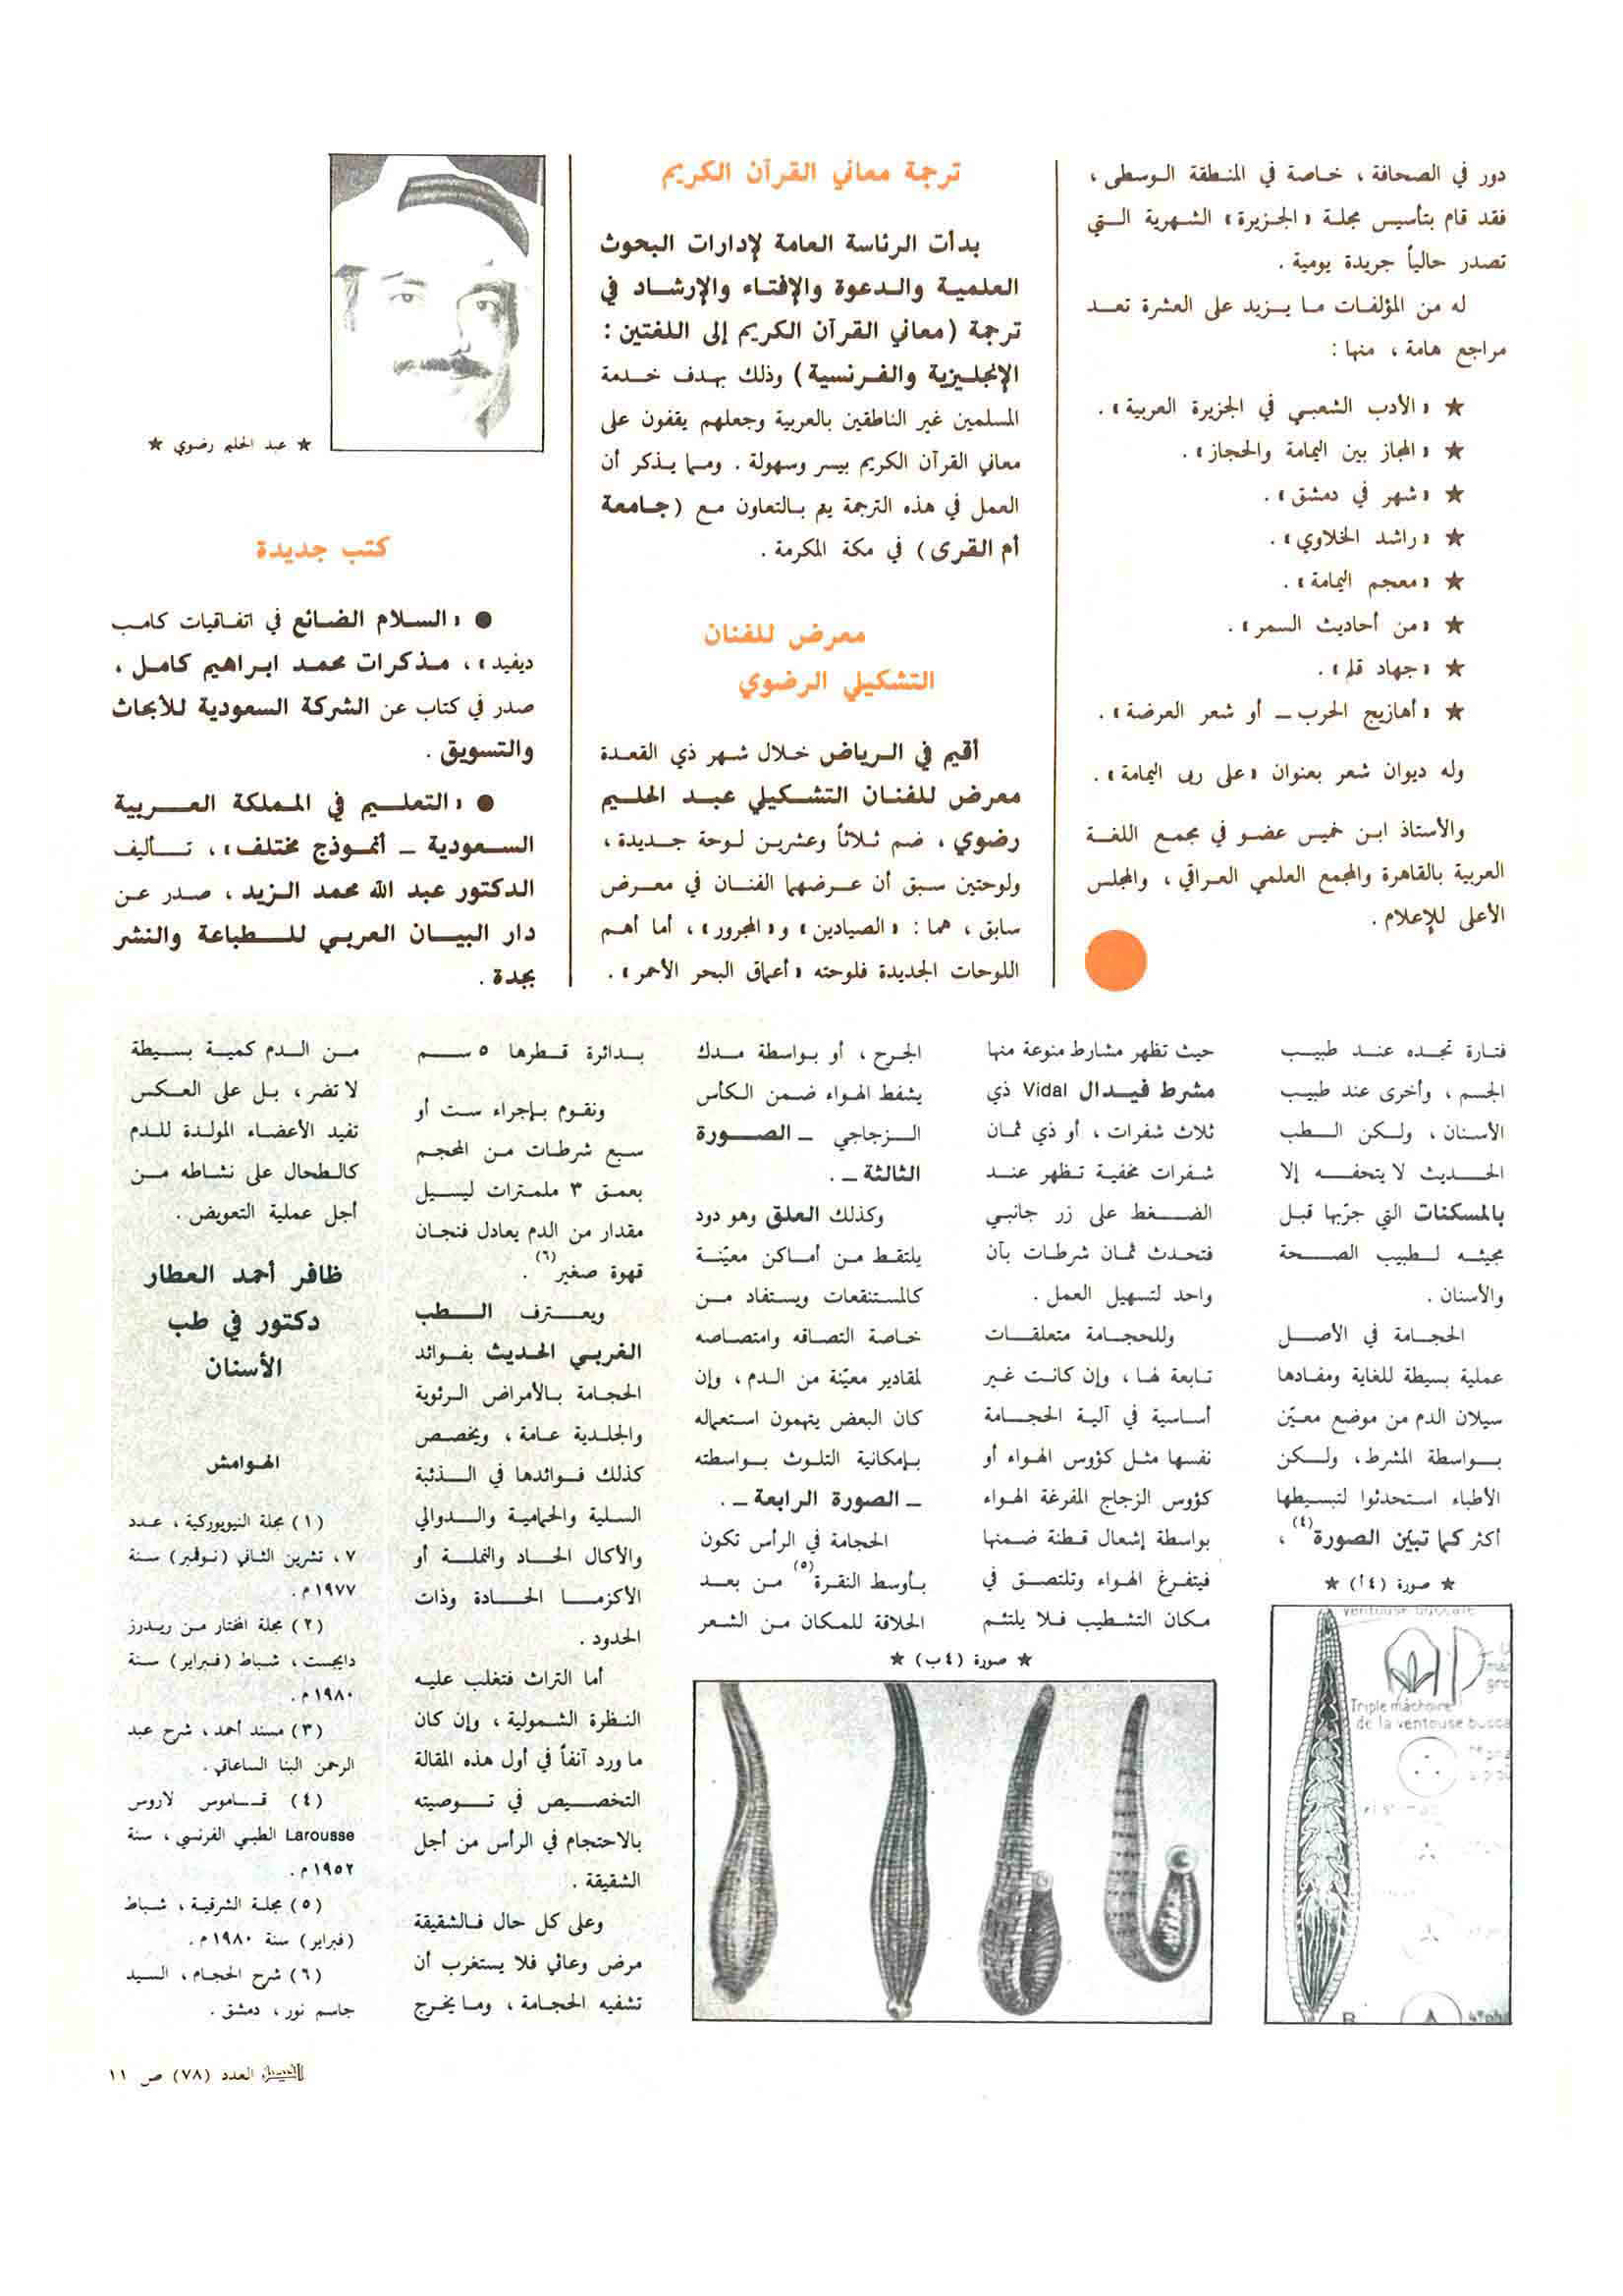 دور في الصحافة ، خاصة في المنطقة الوسطى ،
فقد قام بتأسيس مجلة «الجزيرة» الشهرية التي
تصدر حالياً جريدة يومية .
له من المؤلفات ما يزيد على العشرة تعد
مراجع هامة ، منها :
★ «الأدب الشعبي في الجزيرة العربية» .
★ «المجاز بين اليمامة والحجاز» .
★ «شهر في دمشق» .
★ «راشد الخلاوي» .
★ «معجم اليمامة» .
★ «من أحاديث السمر» .
★ «جهاد قلم» .
★ «أهازيج الحرب – أو شعر العرضة» .
وله ديوان شعر بعنوان «على ربى اليمامة» .
والأستاذ ابن خميس عضو في مجمع اللغة
العربية بالقاهرة والمجمع العلمي العراقي ، والمجلس
الأعلى للإعلام .
ترجمة معاني القرآن الكريم
بدأت الرئاسة العامة لإدارات البحوث
العلمية والدعوة والإفتاء والإرشاد في
ترجمة (معاني القرآن الكريم إلى اللغتين :
الإنجليزية والفرنسية) وذلك بهدف خدمة
المسلمين غير الناطقين بالعربية وجعلهم يقفون على
معاني القرآن الكريم بيسر وسهولة . ومما يذكر أن
العمل في هذه الترجمة يتم بالتعاون مع (جامعة
أم القرى) في مكة المكرمة .
معرض للفنان
التشكيلي الرضوي
أقيم في الرياض خلال شهر ذي القعدة
معرض للفنان التشكيلي عبد الحليم
رضوي ، ضم ثلاثاً وعشرين لوحة جديدة ،
ولوحتين سبق أن عرضهما الفنان في معرض
سابق ، هما : «الصيادين» و«المجرور» ، أما أهم
اللوحات الجديدة فلوحته «أعماق البحر الأحمر» .
★ عبد الحليم رضوي ★
كتب جديدة
● «السلام الضائع في اتفاقيات كامب
ديفيد» ، مذكرات محمد ابراهيم كامل ،
صدر في كتاب عن الشركة السعودية للأبحاث
والتسويق .
● «التعليم في المملكة العربية
السعودية – أنموذج مختلف» ، تأليف
الدكتور عبد الله محمد الزيد ، صدر عن
دار البيان العربي للطباعة والنشر
بجدة .
فتارة تجده عند طبيب
الجسم ، وأخرى عند طبيب
الأسنان ، ولكن الطب
الحديث لا يتحفه إلا
بالمسكنات التي جرّبها قبل
مجيئه لطبيب الصحة
والأسنان .
الحجامة في الأصل
عملية بسيطة للغاية ومفادها
سيلان الدم من موضع معيّن
بواسطة المشرط ، ولكن
الأطباء استحدثوا لتبسيطها
أكثر كما تبيّن الصورة (٤) ،
★ صورة (٤أ) ★
ventouse buccale
Triple mâchoire
de la ventouse bucca
B
A
حيث تظهر مشارط منوعة منها
مشرط فيدال Vidal ذي
ثلاث شفرات ، أو ذي ثمان
شفرات مخفية تظهر عند
الضغط على زر جانبي
فتحدث ثمان شرطات بآن
واحد لتسهيل العمل .
وللحجامة متعلقات
تابعة لها ، وإن كانت غير
أساسية في آلية الحجامة
نفسها مثل كؤوس الهواء أو
كؤوس الزجاج المفرغة الهواء
بواسطة إشعال قطنة ضمنها
فيتفرغ الهواء وتلتصق في
مكان التشطيب فلا يلتئم
الجرح ، أو بواسطة مدك
يشفط الهواء ضمن الكأس
الزجاجي – الصورة
الثالثة – .
وكذلك العلق وهو دود
يلتقط من أماكن معيّنة
كالمستنقعات ويستفاد من
خاصة التصاقه وامتصاصه
لمقادير معيّنة من الدم ، وإن
كان البعض يتهمون استعماله
بإمكانية التلوث بواسطته
– الصورة الرابعة – .
الحجامة في الرأس تكون
بأوسط النقرة (٥) من بعد
الحلاقة للمكان من الشعر
★ صورة (٤ب) ★
بدائرة قطرها ٥ سم
ونقوم بإجراء ست أو
سبع شرطات من المحجم
بعمق ٣ ملمترات ليسيل
مقدار من الدم يعادل فنجان
قهوة صغير (٦) .
ويعترف الطب
الغربي الحديث بفوائد
الحجامة بالأمراض الرئوية
والجلدية عامة ، ويخصص
كذلك فوائدها في الذئبة
السلية والحمامية والدوالي
والأكال الحاد والنملة أو
الأكزما الحادة وذات
الحدود .
أما التراث فتغلب عليه
النظرة الشمولية ، وإن كان
ما ورد آنفاً في أول هذه المقالة
التخصيص في توصيته
بالاحتجام في الرأس من أجل
الشقيقة .
وعلى كل حال فالشقيقة
مرض وعائي فلا يستغرب أن
تشفيه الحجامة ، وما يخرج
من الدم كمية بسيطة
لا تضر ، بل على العكس
تفيد الأعضاء المولدة للدم
كالطحال على نشاطه من
أجل عملية التعويض .
ظافر أحمد العطار
دكتور في طب
الأسنان
الهوامش
(١) مجلة النيويوركية ، عدد
٧ ، تشرين الثاني (نوفمبر) سنة
١٩٧٧م .
(٢) مجلة المختار من ريدرز
دايجست ، شباط (فبراير) سنة
١٩٨٠م .
(٣) مسند أحمد ، شرح عبد
الرحمن البنا الساعاتي .
(٤) قاموس لاروس
Larousse الطبي الفرنسي ، سنة
١٩٥٢م .
(٥) مجلة الشرقية ، شباط
(فبراير) سنة ١٩٨٠م .
(٦) شرح الحجام ، السيد
جاسم نور ، دمشق .
الفيصل العدد (٧٨) ص ١١